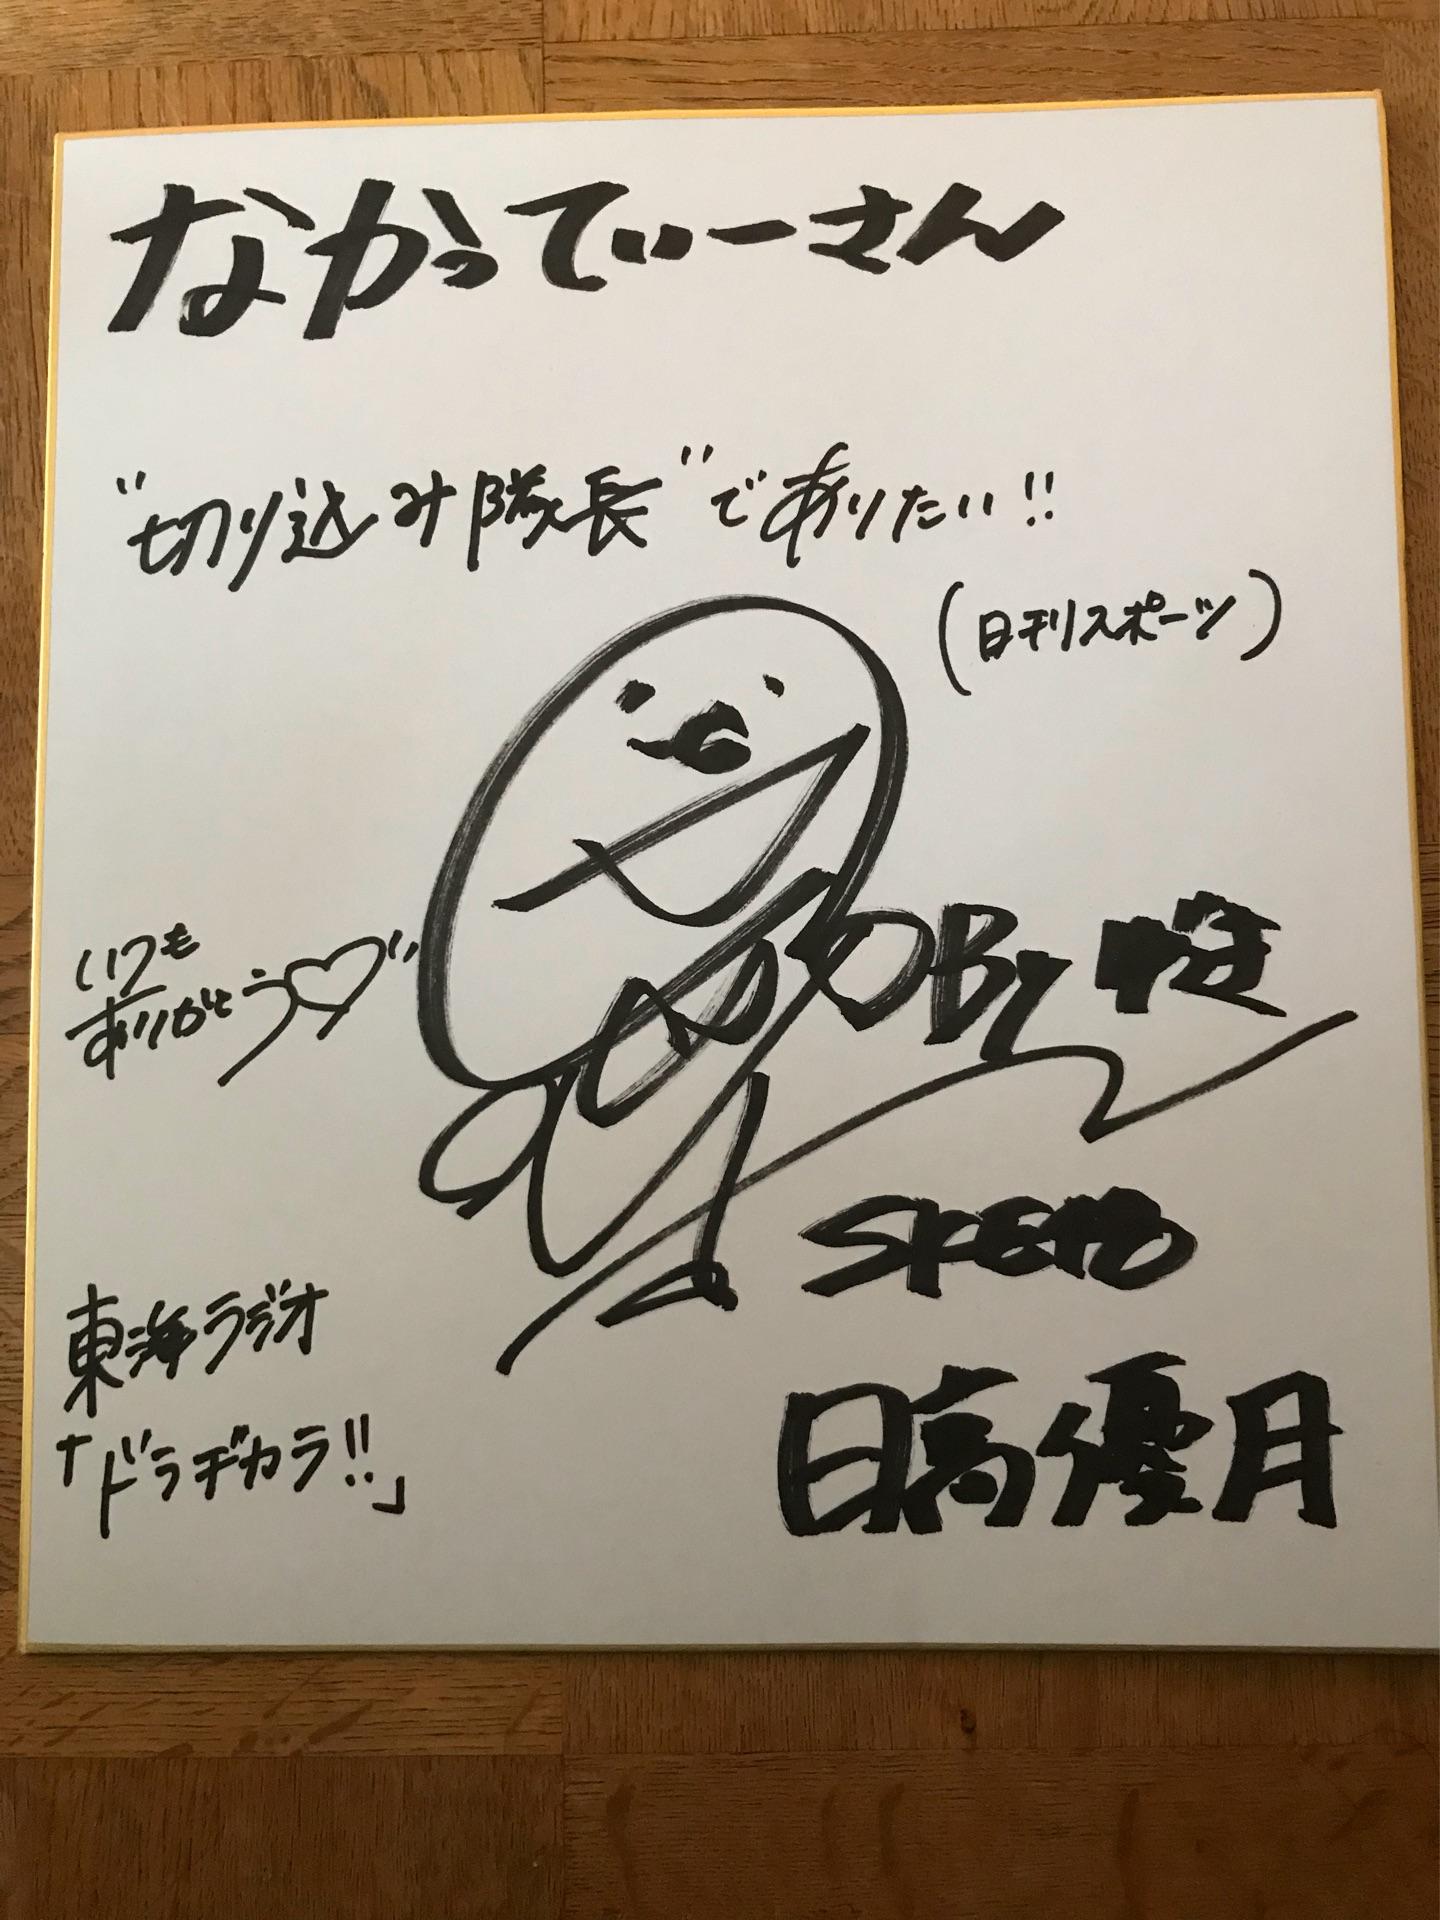 なかってぃーさん
"切り込み隊長"でありたい!!
(日刊スポーツ)
いつも
ありがとう♡
SKE48
東海ラジオ
「ドラヂカラ!!」
日高優月